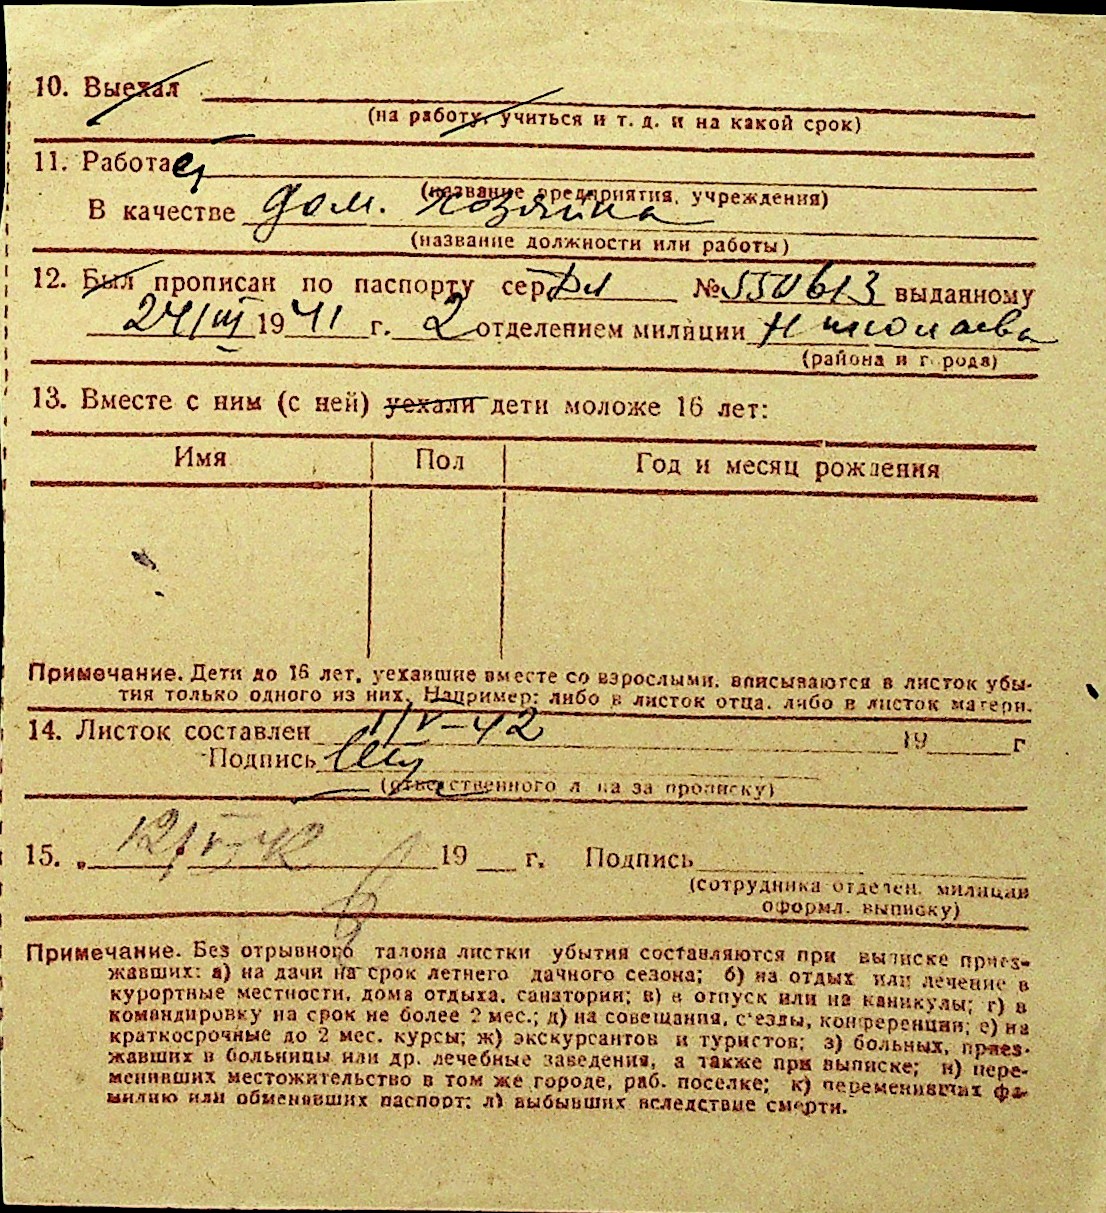 10. Выехал
(на работу, учиться и т. д. и на какой срок)
11. Работает
(название предприятия, учреждения)
В качестве дом. хозяйка
(название должности или работы)
12. Был прописан по паспорту сер. № 550613 выданному
24/III 1941 г. 2 отделением милиции Николаева
(района и города)
13. Вместе с ним (с ней) уехали дети моложе 16 лет:
Имя Пол Год и месяц рождения
Примечание. Дети до 16 лет, уехавшие вместе со взрослыми, вписываются в листок убы-
тия только одного из них. Например: либо в листок отца, либо в листок матери.
14. Листок составлен /V-42 19 г
Подпись
(ответственного л ца за прописку)
15. „ 12/V-42 19 г. Подпись
(сотрудника отделен. милиции
оформл. выписку)
Примечание. Без отрывного талона листки убытия составляются при выписке приез-
жавших: а) на дачи на срок летнего дачного сезона; б) на отдых или лечение в
курортные местности, дома отдыха, санатории; в) в отпуск или на каникулы; г) в
командировку на срок не более 2 мес.; д) на совещания, с'езды, конференции; е) на
краткосрочные до 2 мес. курсы; ж) экскурсантов и туристов; з) больных, приез-
жавших в больницы или др. лечебные заведения, а также при выписке; и) пере-
менивших местожительство в том же городе, раб. поселке; к) переменивших фа-
милию или обменявших паспорт; л) выбывших вследствие смерти.